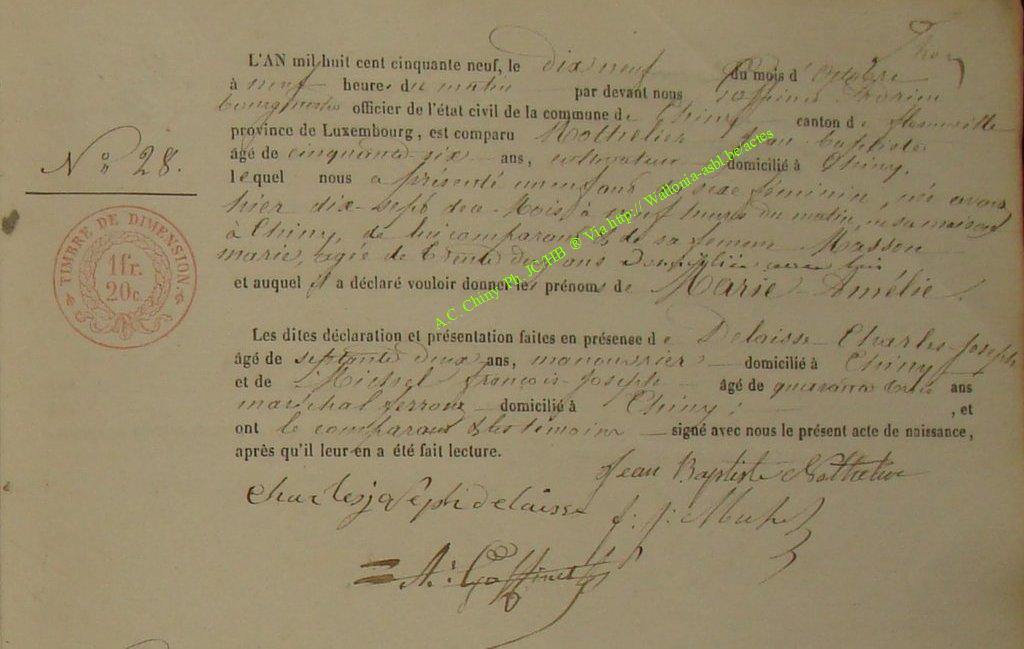 L'AN mil huit cent cinquante neuf, le dix neuf du mois d'Octobre
à neuf heures du matin par devant nous Goffinet Adrien
bourgmestre officier de l'état civil de la commune de Chiny canton de Florenville
province de Luxembourg, est comparu Nothelier Jean Baptiste
âgé de cinquante six ans, cultivateur domicilié à Chiny,
lequel nous a présenté un enfant de sexe féminin, née avant
hier dix-sept dece Mois, à neuf heures du matin, en sa maison
à Chiny, de lui comparant & de sa femme Masson
marie, agée de trente deux ans domiciliée avec lui
et auquel il a déclaré vouloir donner les prénoms de Marie-Amélie.
N° 28.
TIMBRE DE DIMENSION
1 fr.
20 c.
Les dites déclaration et présentation faites en présense de Delaisse Charles-Joseph
âgé de septante deux ans, manouvrier domicilié à Chiny
et de Michel françois-Joseph âgé de quarante trois ans
maréchal ferrant domicilié à Chiny; , et
ont le comparant & les témoins signé avec nous le présent acte de naissance,
après qu'il leur en a été fait lecture.
Jean Baptiste Nothelier
Charles joseph delaisse f: j: Michel
A: Goffinet
A.C. Chiny Ph. JC/HB ® Via http:// Wallonia-asbl.be/actes